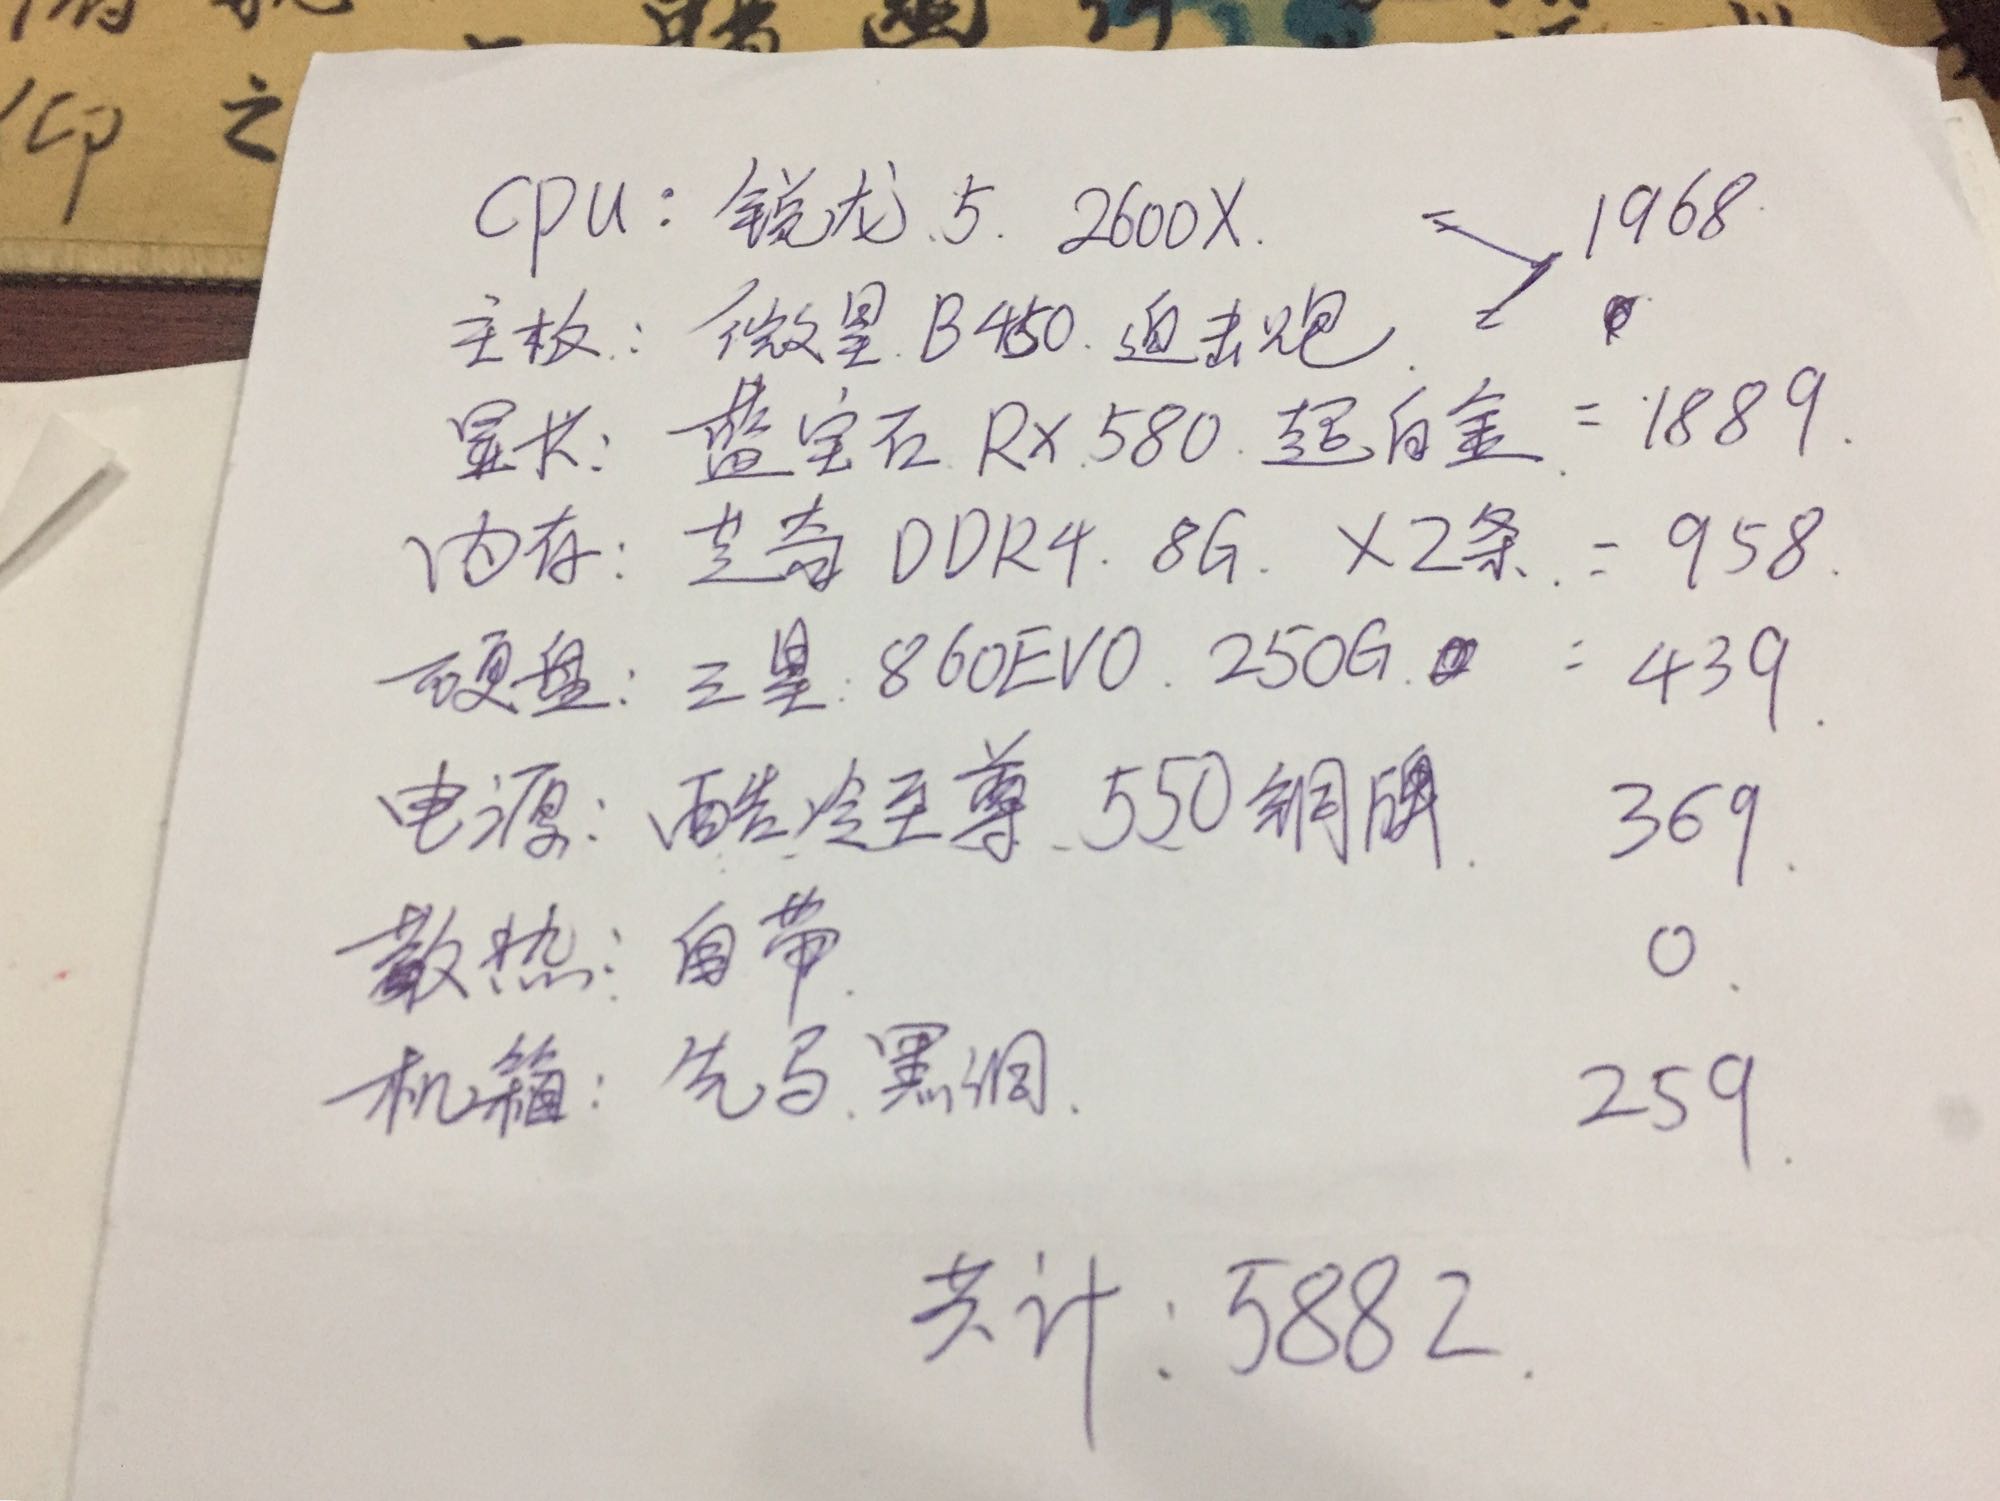 仰 之
CPU: 锐龙 5 2600X. = 1968
主板: 微星 B450 迫击炮.
显卡: 蓝宝石 RX 580 超白金 = 1889.
内存: 芝奇 DDR4 8G ×2条 = 958.
硬盘: 三星 860EVO 250G = 439.
电源: 酷冷至尊 550铜牌. 369.
散热: 自带. 0.
机箱: 先马 黑洞. 259.
共计: 5882.